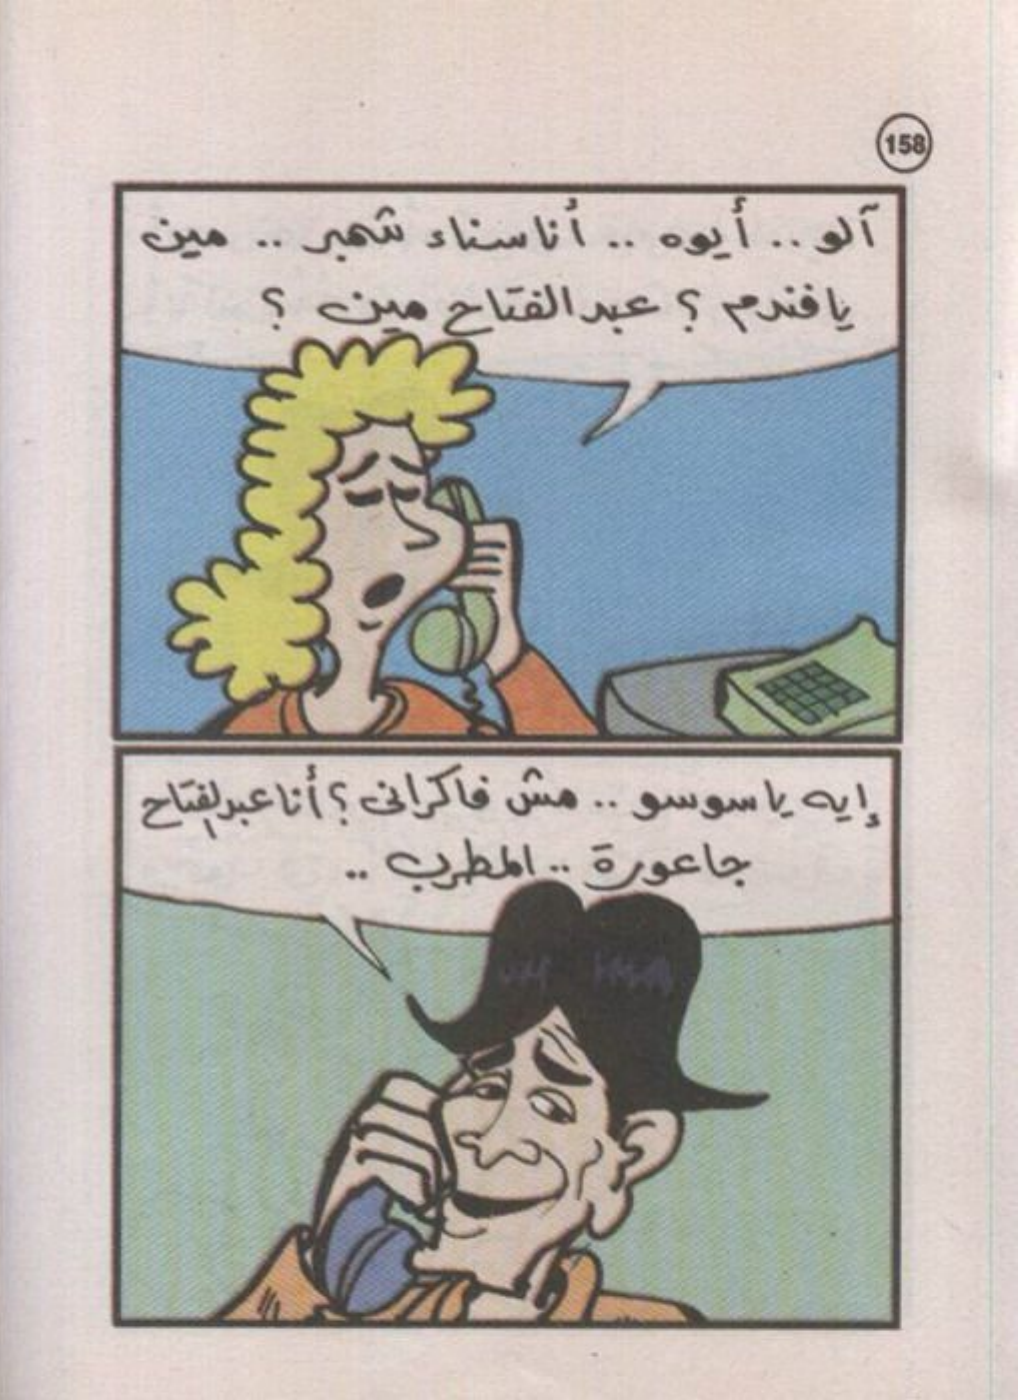 158
آلو .. أيوه .. أنا سناء شمبر .. مين
يافندم ؟ عبد الفتاح مين ؟
إيه يا سوسو .. مش فاكرانى ؟ أنا عبد الفتاح
جاعورة .. المطرب ..